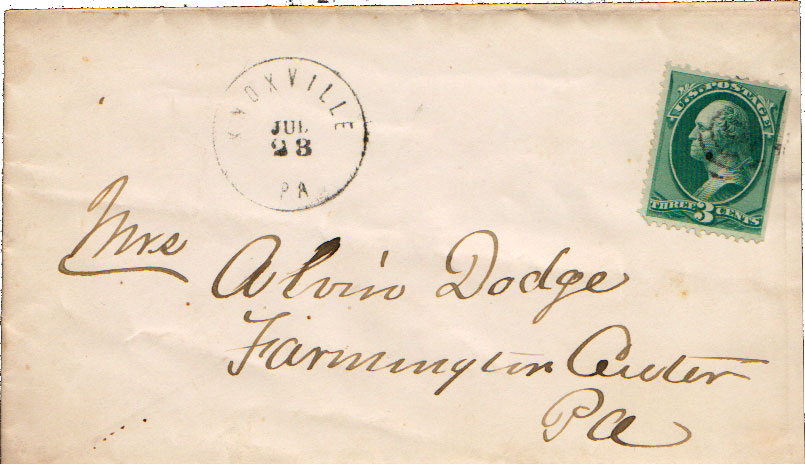 KNOXVILLE
JUL
23
PA
U.S. POSTAGE
THREE 3 CENTS
Mrs Alvin Dodge
Farmington Center
Pa